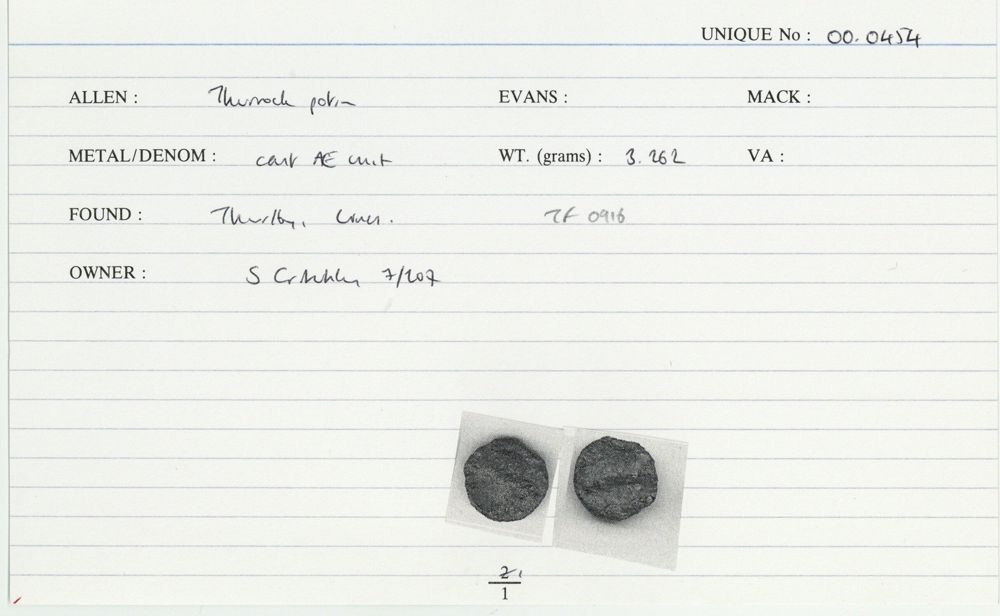 UNIQUE No : 00.0454
ALLEN : Thurrock potin EVANS : MACK :
METAL/DENOM : cast AE unit WT. (grams) : 3.262 VA :
FOUND : Thurlby, Lincs. TF 0916
OWNER : S Critchley 7/207
2
1